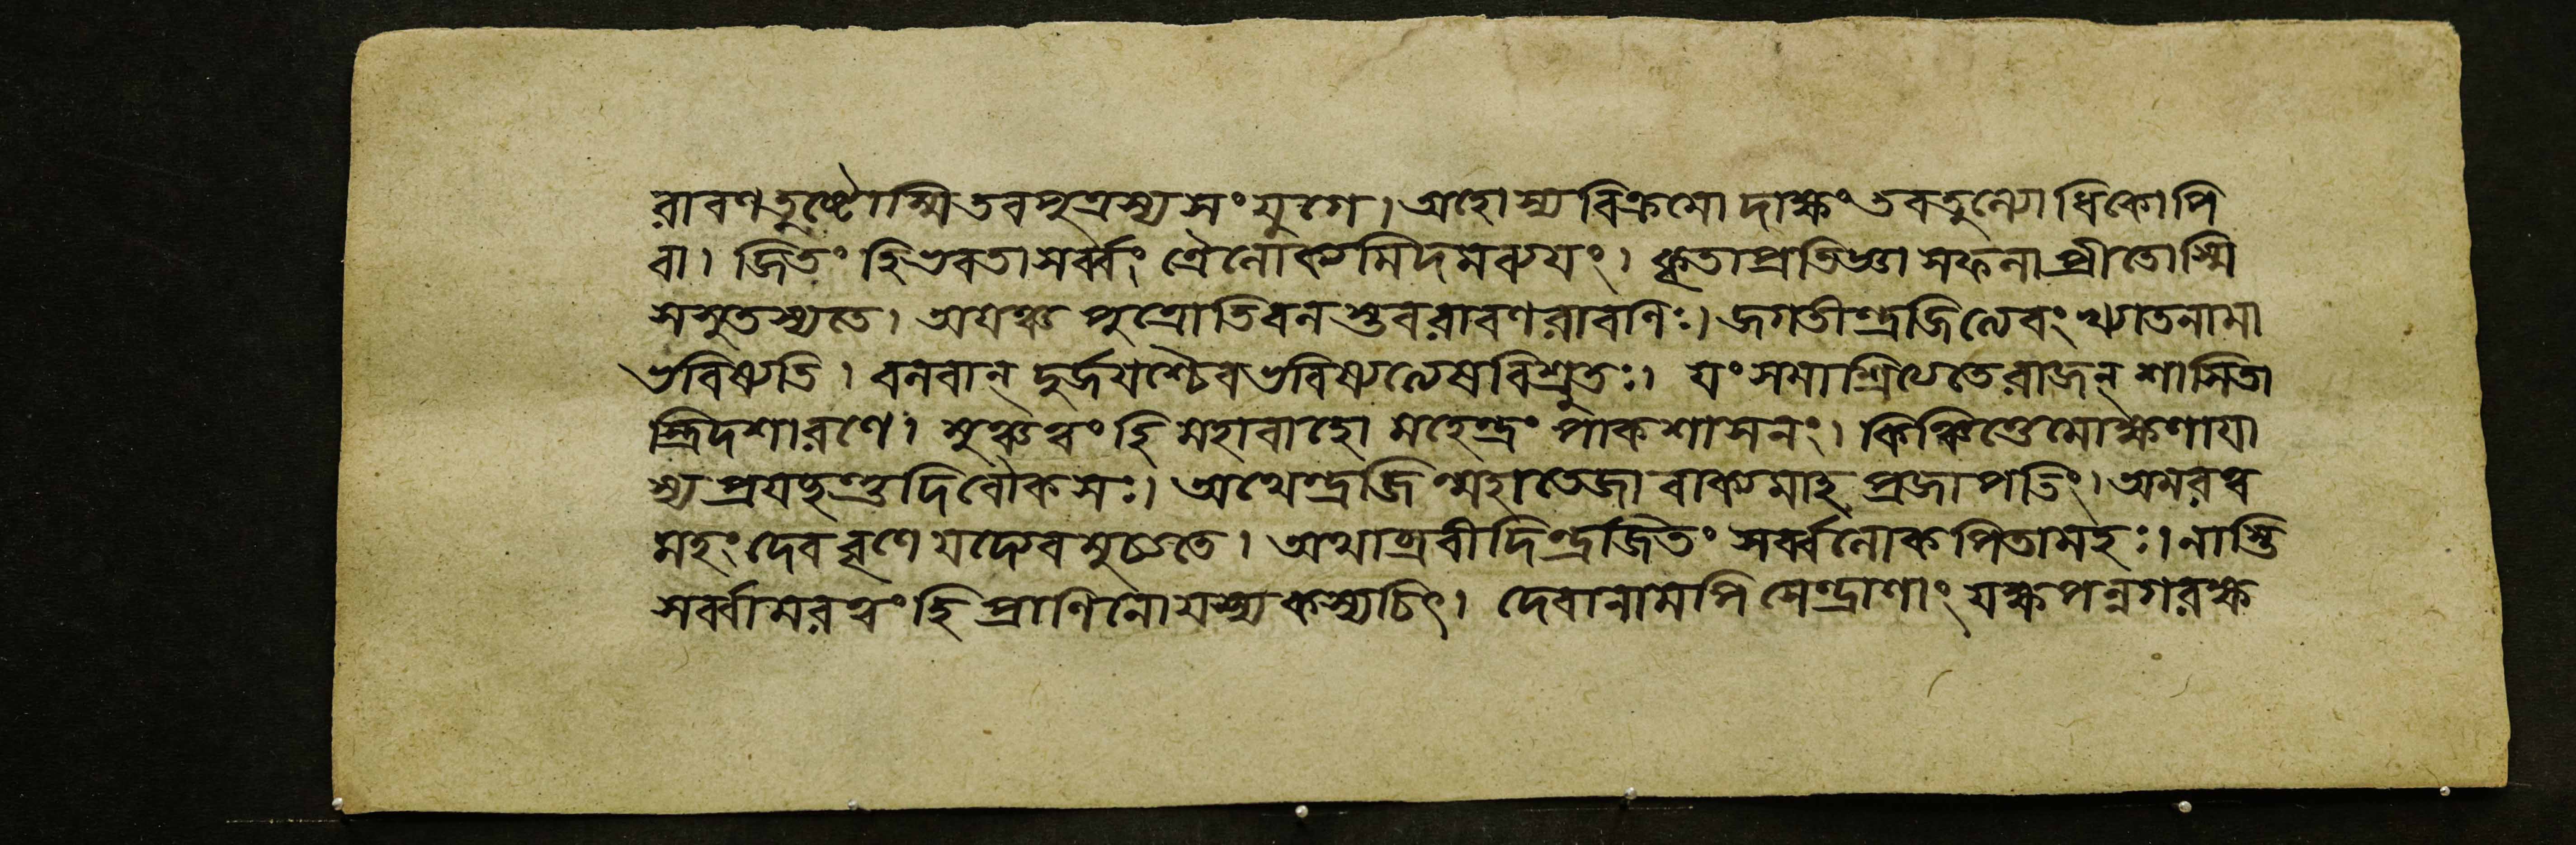 রাবণতুষ্টোস্মিতবপুত্রস্যসংযুগে। অহোস্যবিক্রমোদার্য্যংতবতুল্যোধিকোপি
বা। জিতংহিভবতাসর্ব্বংত্রৈলোক্যমিদমব্যযং। কৃতাপ্রতিজ্ঞাসফলাপ্রীতোস্মি
সসুতস্যতে। অযঞ্চপুত্রোতিবলস্তবরাবণরাবণিঃ। জগতীন্দ্রজিত্যেবংখ্যাতনামা
ভবিষ্যতি। বলবান্দুর্জযশ্চৈবভবিষ্যত্যেষবিশ্রুতঃ। যংসমাশ্রিত্যতেরাজন্শাসিতা
স্ত্রিদশারণে। মুঞ্চত্বংহিমহাবাহোমহেন্দ্রংপাকশাসনং। কিঞ্চিত্তেমোক্ষণাযা
স্যপ্রযচ্ছন্তুদিবৌকসঃ। অথেন্দ্রজিন্মহাতেজাবাক্যমাহপ্রজাপতিং। অমরত্ব
মহংদেববৃণেযদ্যেবমুচ্যতে। অথাব্রবীদিন্দ্রজিতংসর্ব্বলোকপিতামহঃ। নাস্তি
সর্ব্বামরত্বংহিপ্রাণিনোযস্যকস্যচিৎ। দেবানামপিসেন্দ্রাণাংযক্ষপন্নগরক্ষ